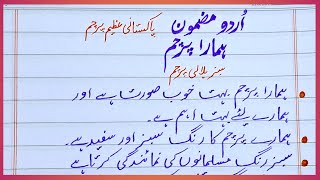 اُردو مضمون
پاکستانی عظیم پرچم
ہمارا پرچم
سبز ہلالی پرچم
ہمارا پرچم بہت خوب صورت ہے اور
ہمارے لئے بہت اہم ہے۔
ہمارے پرچم کا رنگ سبز اور سفید ہے۔
سبز رنگ مسلمانوں کی نمائندگی کرتا ہے